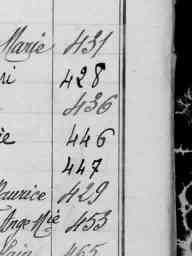 Marie 431
ri 428
436
ie 446
447
Maurice 429
Ange Mie 453
465